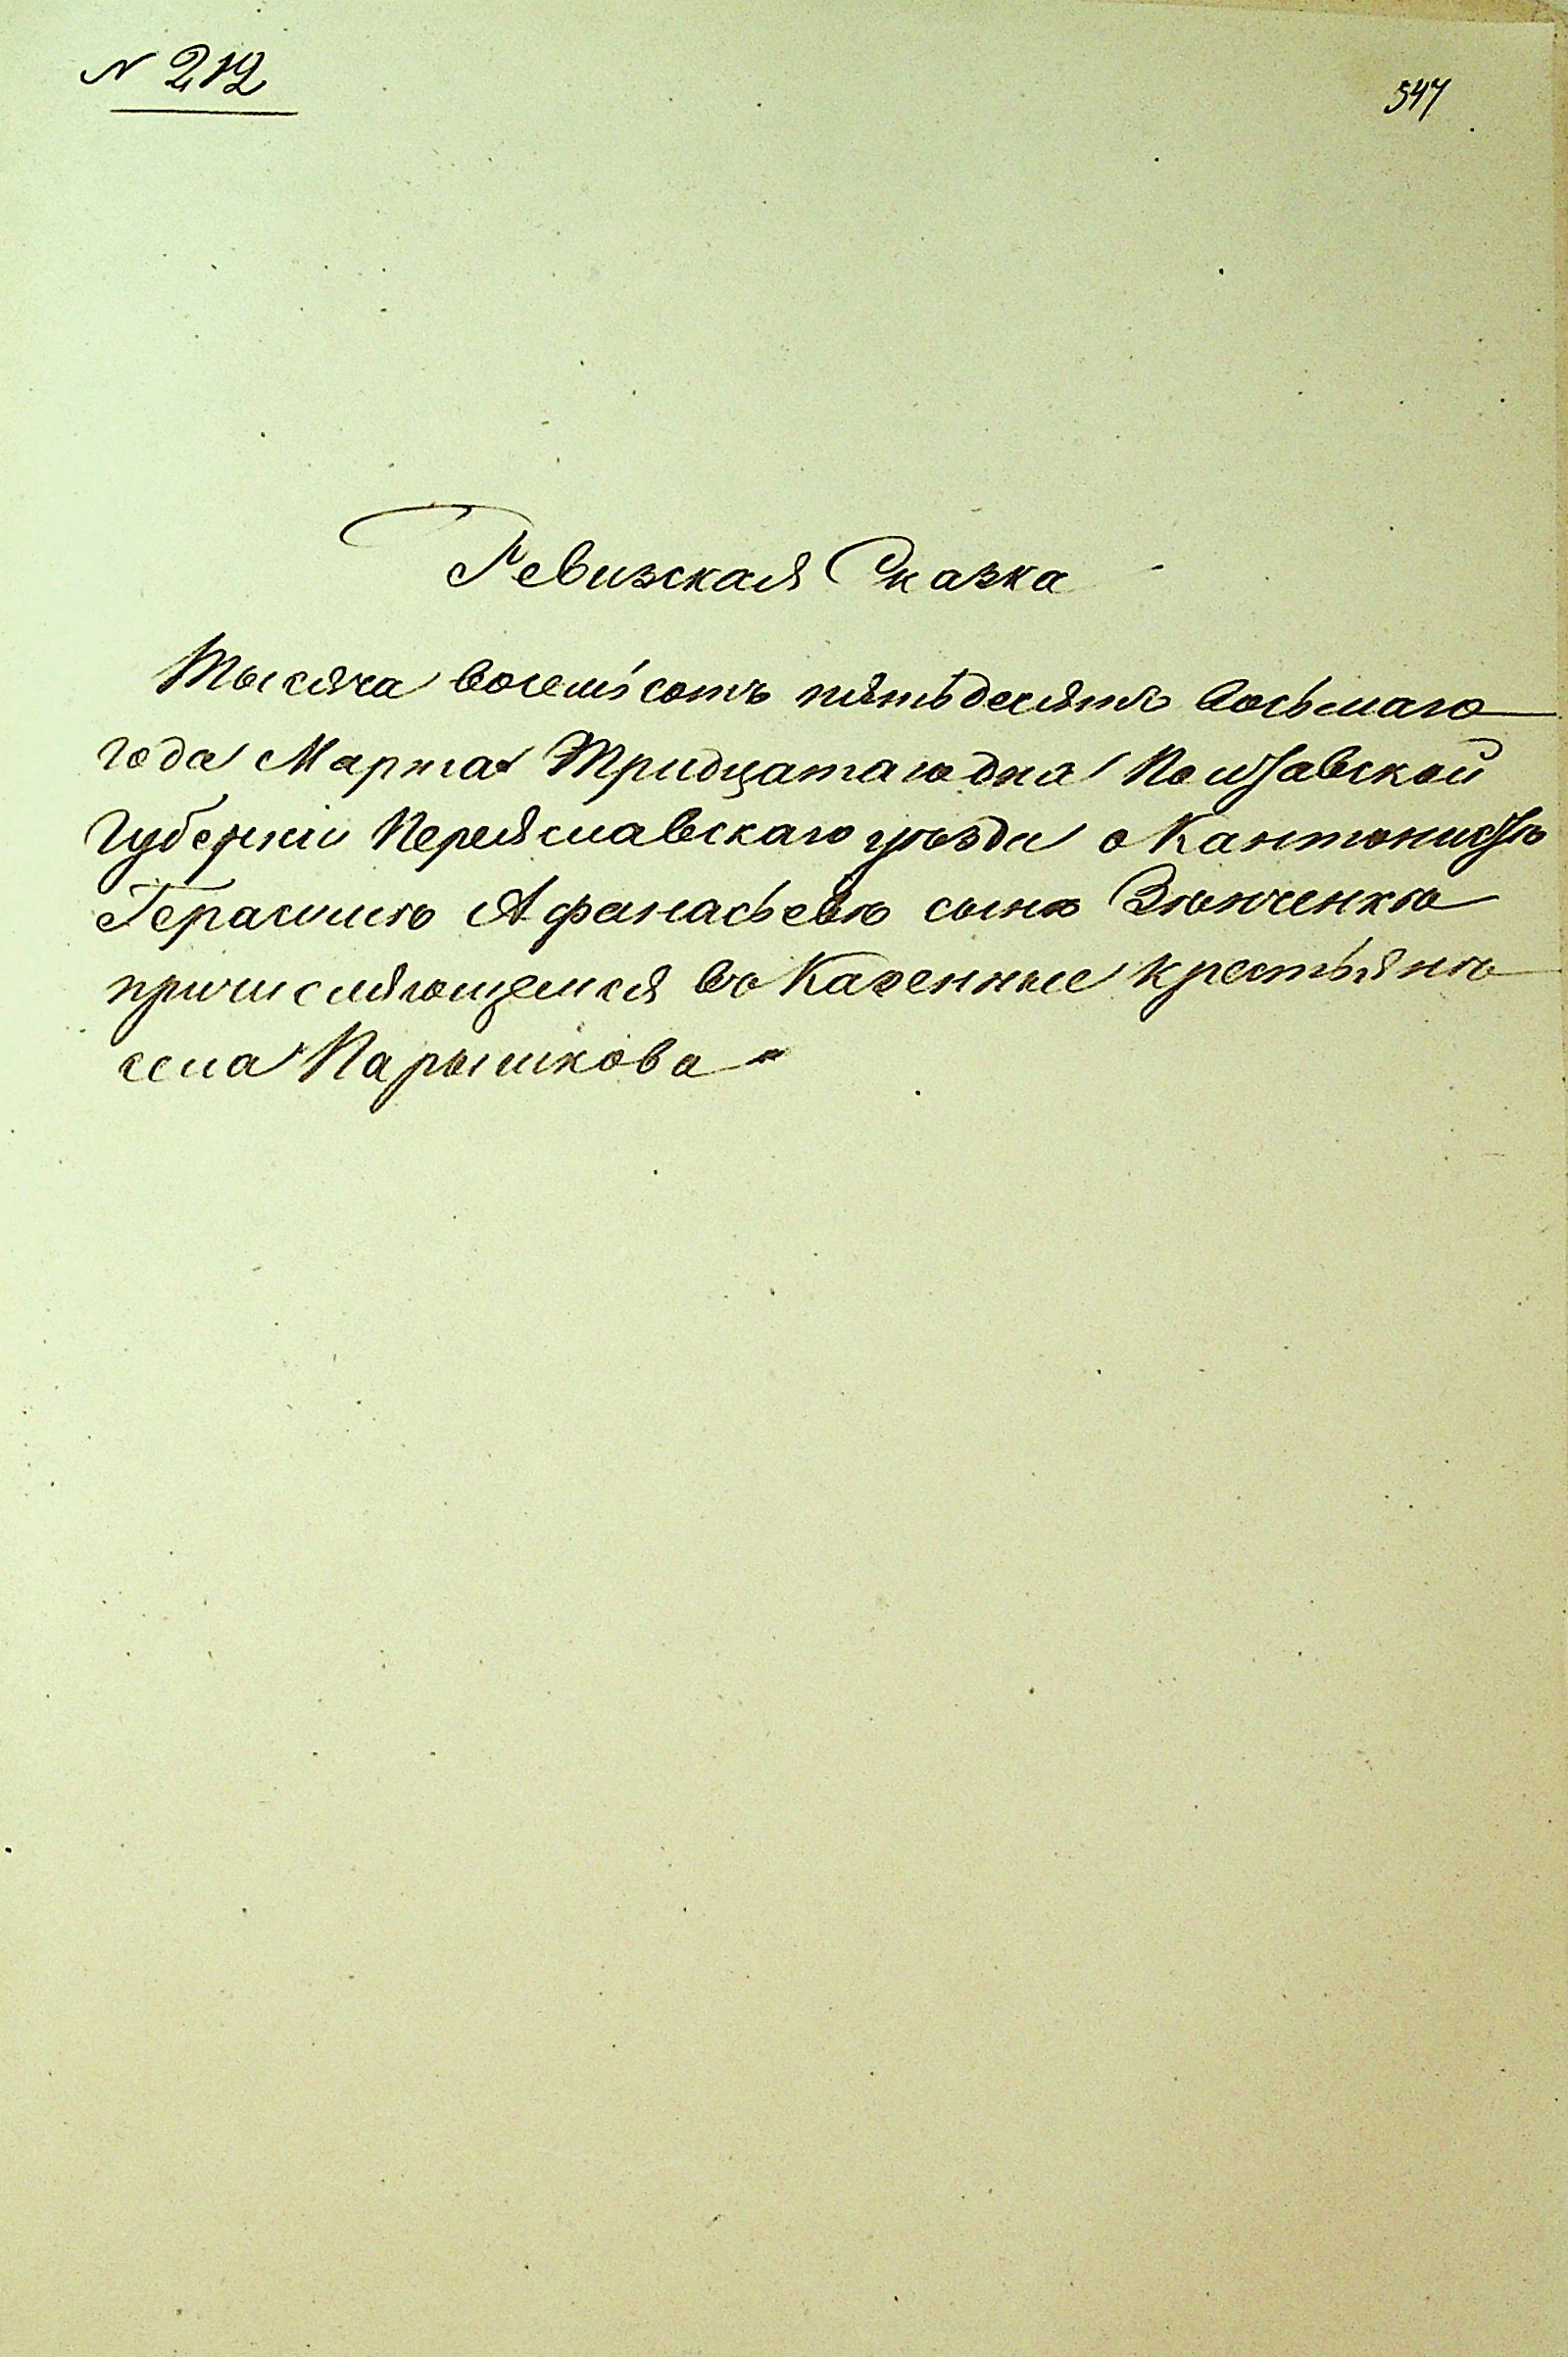 N 212
547
Ревизская Сказка
Тысяча восемьсотъ пятьдесятъ восьмаго
года Марта Тридцатаго дня Полтавской
Губерніи Переяславскаго уѣзда о Кантонистѣ
Герасимѣ Афанасьевѣ сынѣ
причисляющемся въ Казенные крестьянѣ
села Парышкова